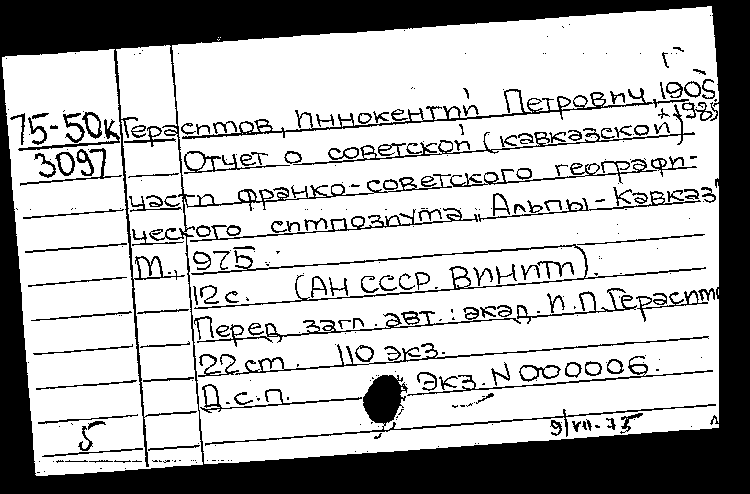 Г
75-50к Герасимов, Иннокентий Петрович, 1905
3097 +1985
Отчет о советской (кавказской)
части франко-советского географи-
ческого симпозиума „Альпы-Кавказ"
М., 975.
12 с. (АН СССР. ВИНИТИ).
Перед загл. авт.: акад. И.П. Герасим
22 см. 110 экз.
Д.с.п. Экз. N 000006.
5 9/VII-75